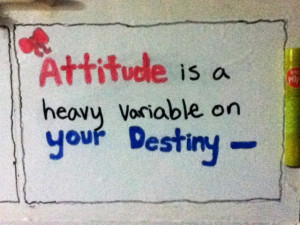 Attitude is a
heavy variable on
your Destiny —